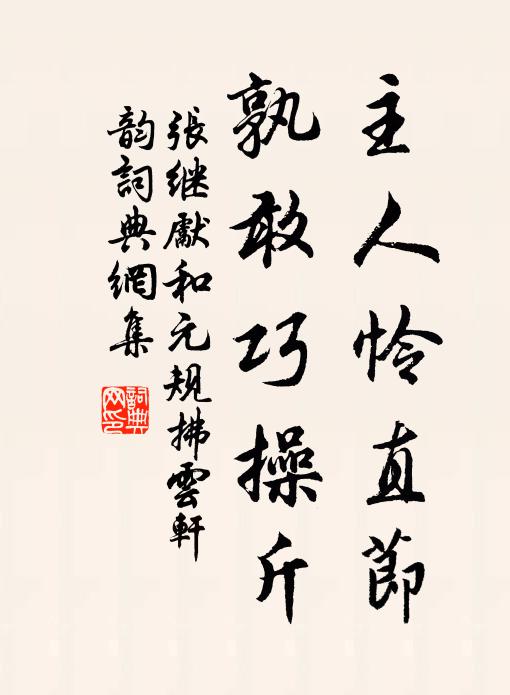 主人怜直節
孰敢巧操斤
張継獻和元規拂雲軒
韵詞典網集
詞典
网印